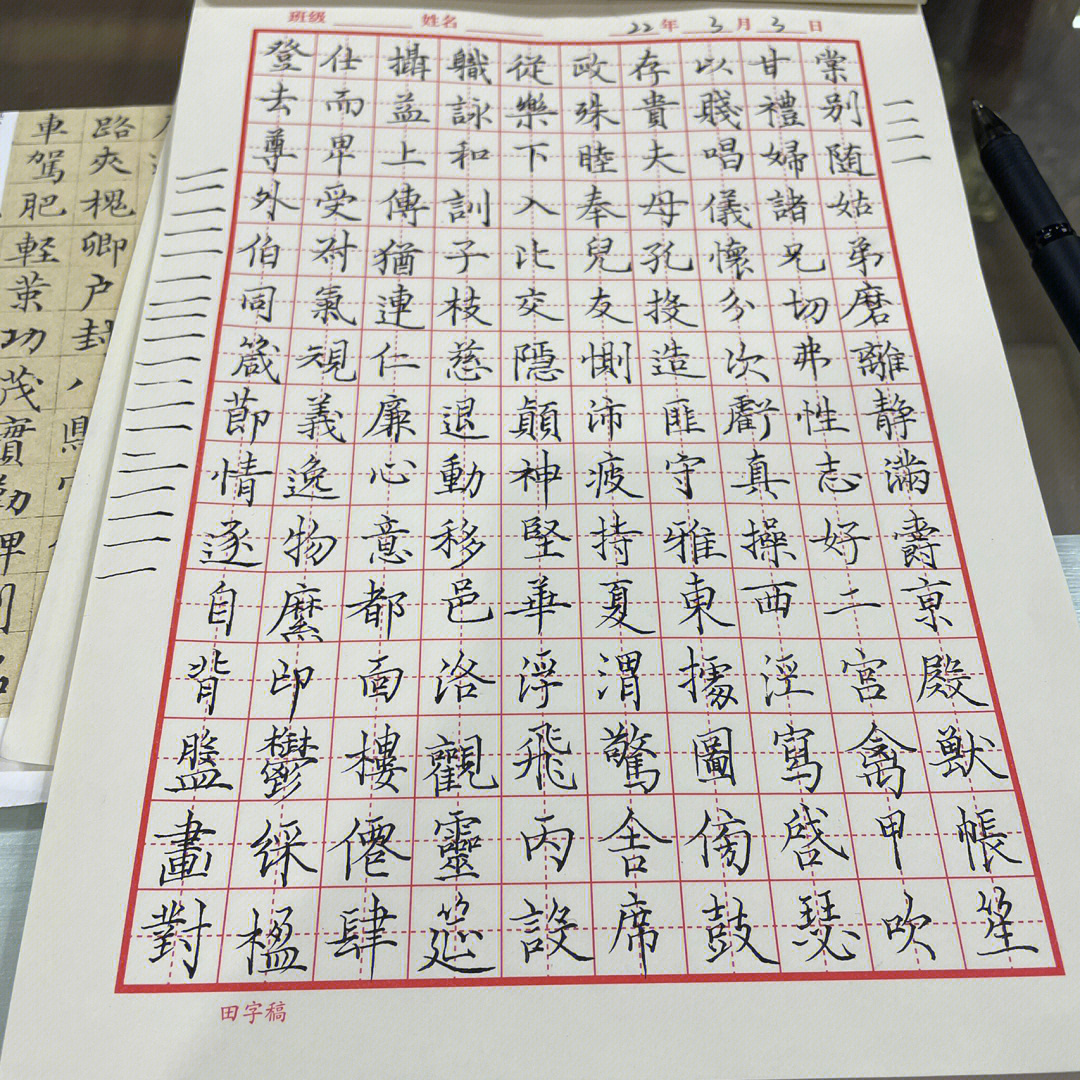 班级 姓名 22年3月3日
登仕攝職從政存以甘棠
去而益詠樂殊貴賤禮别
尊卑上和下睦夫唱婦随
外受傅訓入奉母儀諸姑
伯叔猶子比兒孔懷兄弟
同氣連枝交友投分切磨
箴規仁慈隱惻造次弗離
節義廉退顛沛匪虧性静
情逸心動神疲守真志滿
逐物意移堅持雅操好爵
自縻都邑華夏東西二京
背邙面洛浮渭據涇宮殿
盤鬱樓觀飛驚圖寫禽獸
畫綵僊靈丙舍傍啓甲帳
對楹肆筵設席鼓瑟吹笙
田字稿
路夾槐卿户封八縣
車駕肥軽策功茂實勒碑刻名